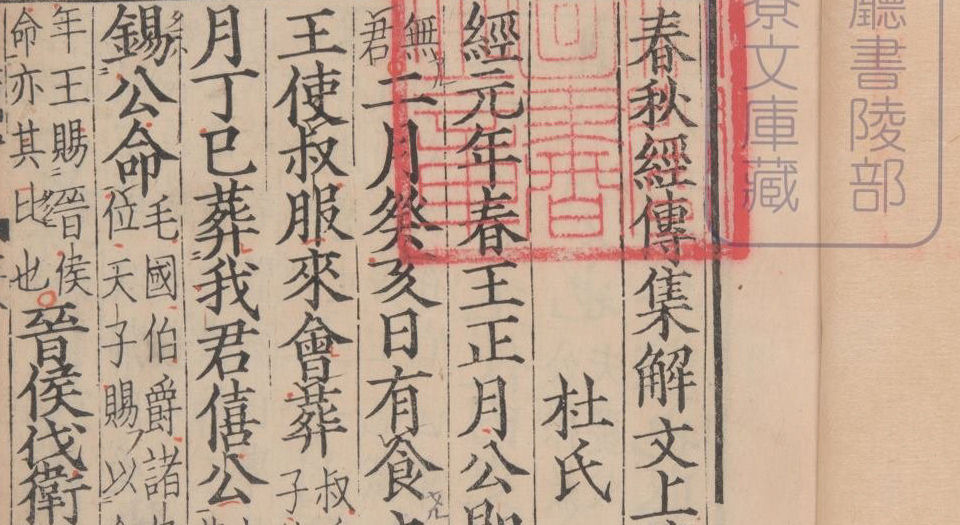 廳書陵部
寮文庫藏
春秋經傳集解文上
杜氏
經元年春王正月公即
無
君
二月癸亥日有食
王使叔服來會葬
叔
子
月丁巳葬我君僖公
錫公命
毛國伯爵諸
位天子賜以
年王賜晉侯
命亦其比也
晉侯伐衛